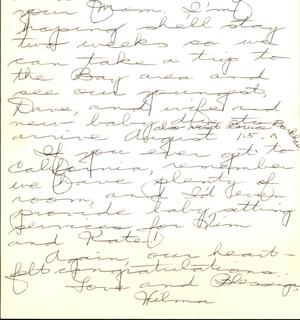 your Mom. I'm
hoping she'll stay
two weeks so we
can take a trip to
the Bay area and
see our youngest,
Dane, and wife and
new baby due to
arrive August 15.
also visit Bruce
If you ever get to
California, remember
we have plenty of
room, and I'd even
provide baby sitting
services for Him
and Kate!
Again, our heart-
felt congratulations.
Love and Blessings,
Wilma